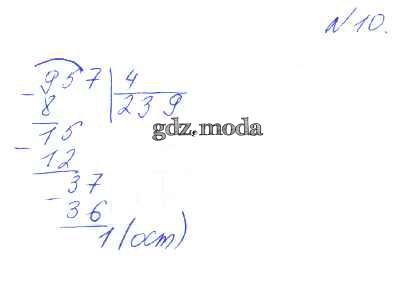 №10.
957 | 4
- 8 | 239
15
- 12
37
- 36
1 (ост)
gdz.moda